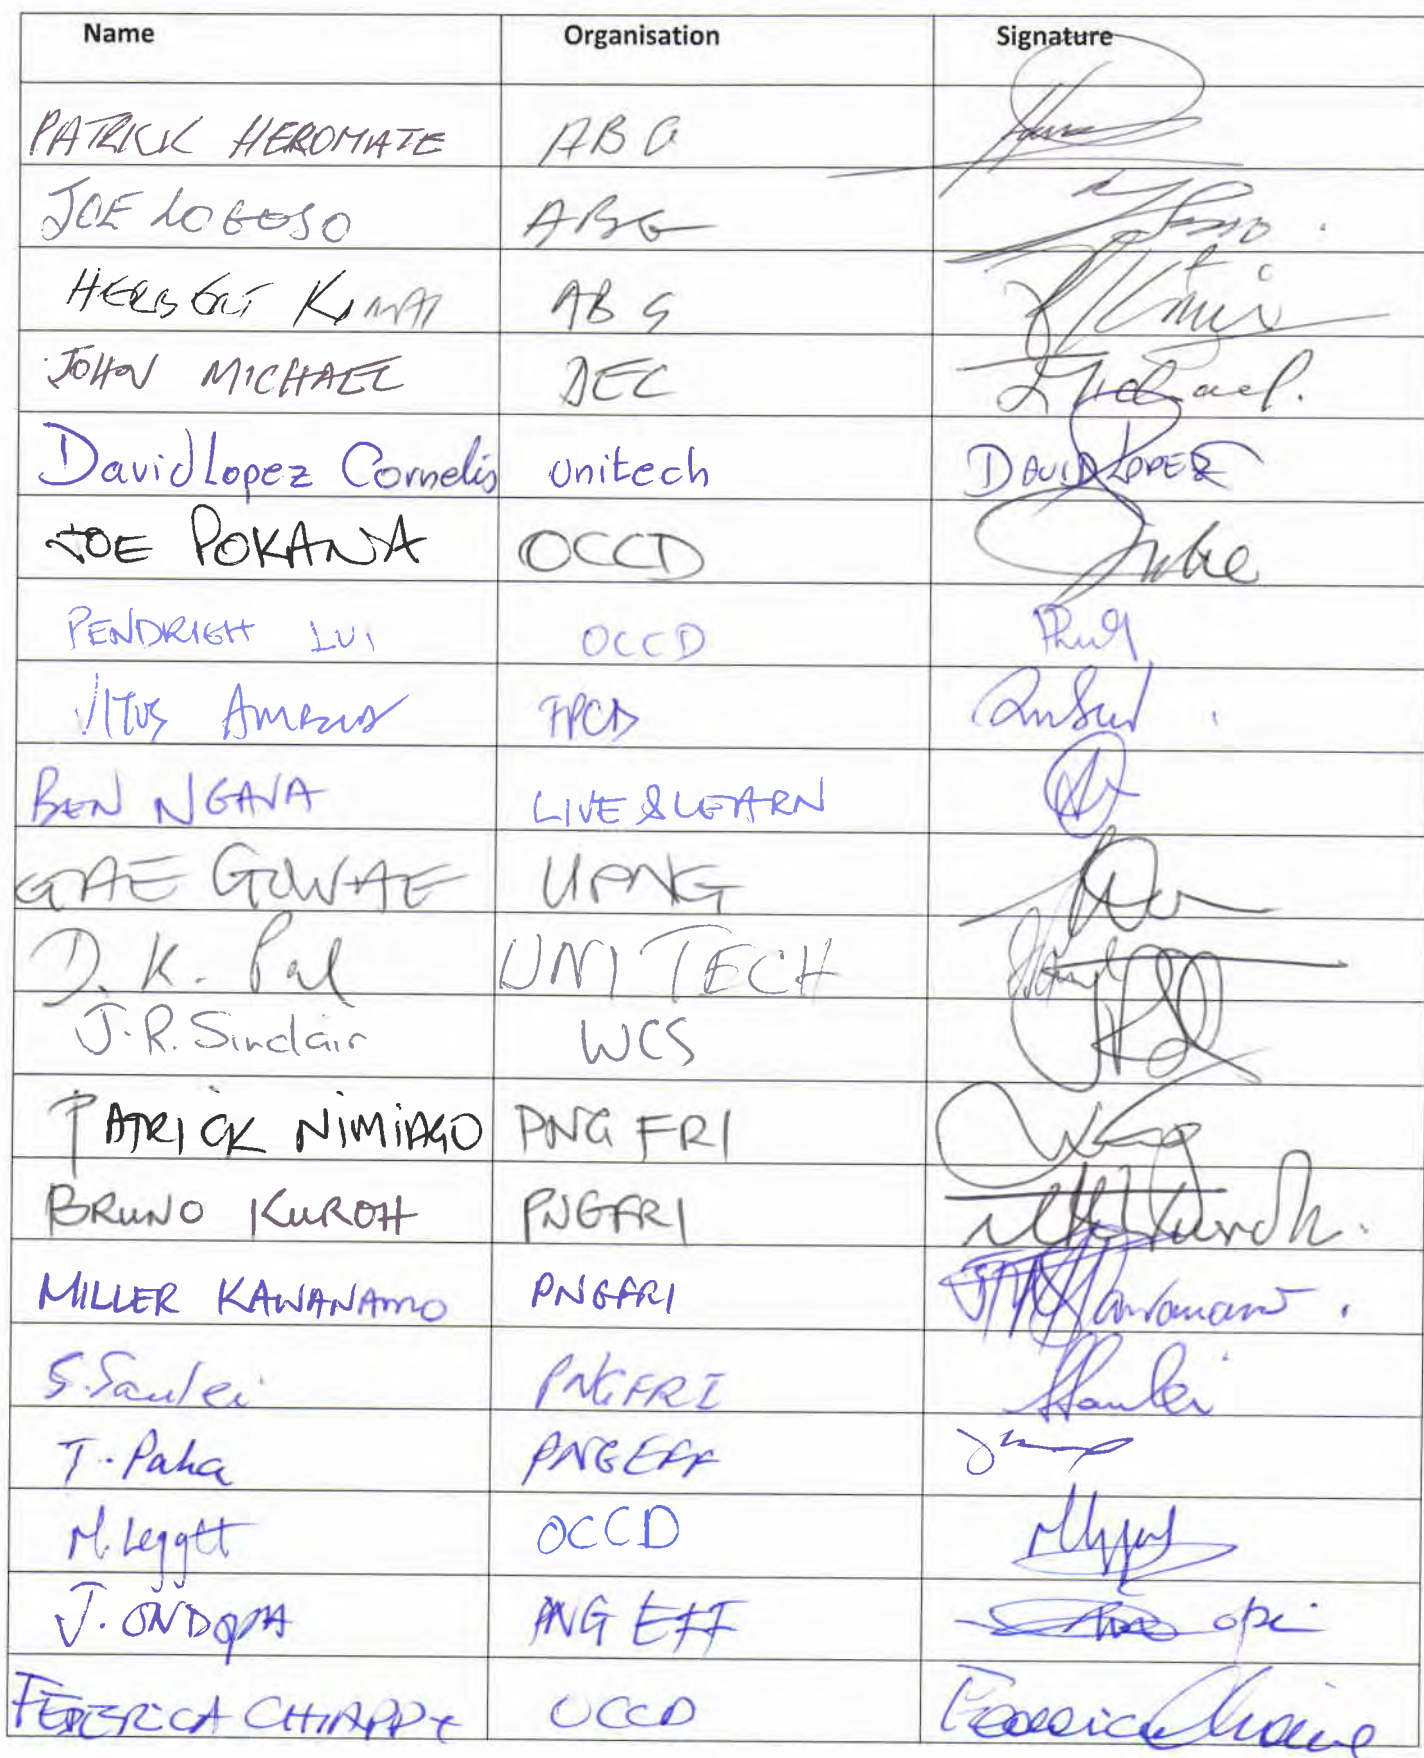 Name Organisation Signature
PATRICK HEROMATE ABG
JOE LOGOSO ABG
HERBERT KIMAI ABG
JOHN MICHAEL DEC Michael.
David Lopez Cornelis Unitech DAVID LOPEZ
JOE POKANA OCCD
PENDRIGH LUI OCCD
VITUS AMBIA FPCD
BEN NGAVA LIVE & LEARN
GAE GOWAE UPNG
D. K. Pal UNITECH
J.R. Sinclair WCS
PATRICK NIMIAGO PNG FRI
BRUNO KUROH PNGFRI Kuroh.
MILLER KAWANAMO PNGFRI Kawanamo.
S. Saulei PNGFRI Saulei
T. Paha PNGEFF
M. Leggett OCCD
J. ONDOPA PNG EFF
FEDERICA CHIAPPE OCCD Federica Chiappe